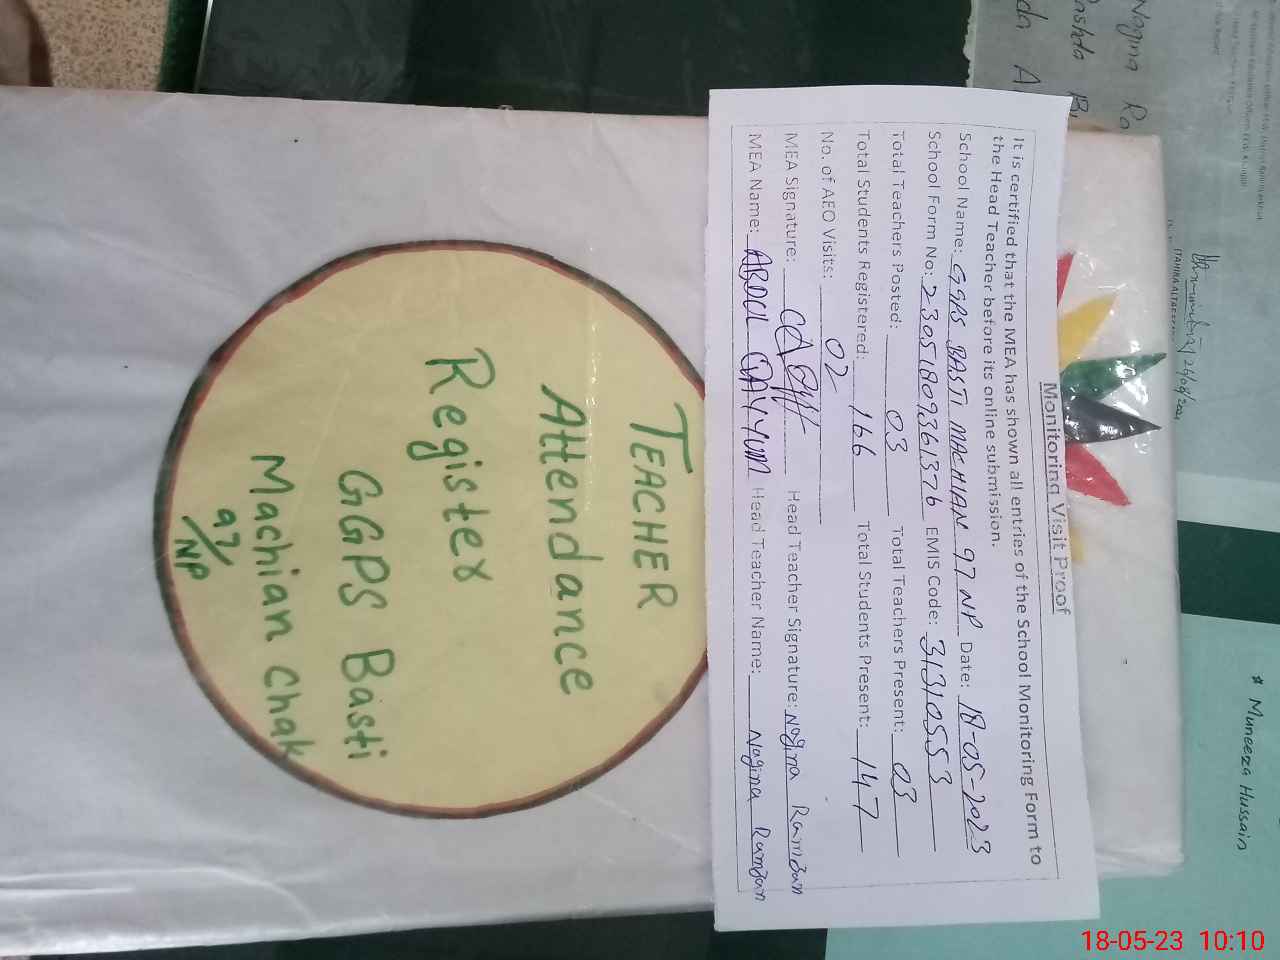 Monitoring Visit Proof
It is certified that the MEA has shown all entries of the School Monitoring Form to
the Head Teacher before its online submission.
School Name: GGPS BASTI MACHIAN 97.NP Date: 18-05-2023
School Form No: 23051809361376 EMIS Code: 31310553
Total Teachers Posted: 03 Total Teachers Present: 03
Total Students Registered: 166 Total Students Present: 147
No. of AEO Visits: 02
MEA Signature: Head Teacher Signature: Nagina Ramzan
MEA Name: ABDUL QAYYUM Head Teacher Name: Nagina Ramzan
TEACHER
Attendance
Register
GGPS Basti
Machian Chak
97/NP
Nagina
# Muneeza Hussain
18-05-23 10:10